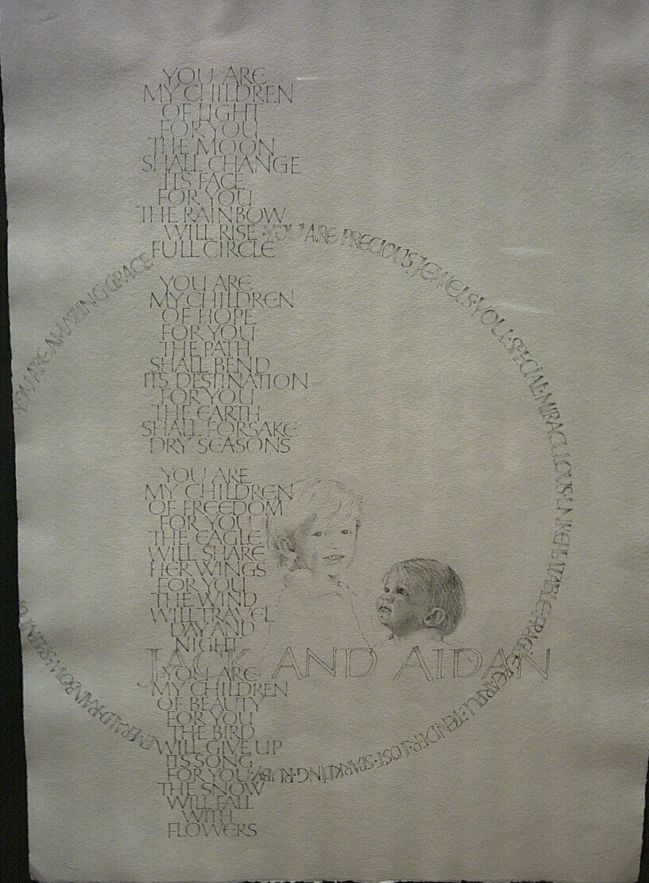 YOU ARE
MY CHILDREN
OF LIGHT
FOR YOU
THE MOON
SHALL CHANGE
ITS FACE
FOR YOU
THE RAINBOW
WILL RISE
FULL CIRCLE
YOU ARE
MY CHILDREN
OF HOPE
FOR YOU
THE PATH
SHALL BEND
ITS DESTINATION
FOR YOU
THE EARTH
SHALL FORSAKE
DRY SEASONS
YOU ARE
MY CHILDREN
OF FREEDOM
FOR YOU
THE EAGLE
WILL SHARE
HER WINGS
FOR YOU
THE WIND
WILL TRAVEL
DAY AND
NIGHT
JACK AND AIDAN
YOU ARE
MY CHILDREN
OF BEAUTY
FOR YOU
THE BIRD
WILL GIVE UP
ITS SONG
FOR YOU
THE SNOW
WILL FALL
WITH
FLOWERS
YOU ARE AMAZING GRACE
YOU ARE PRECIOUS JEWELS·YOU·SPECIAL·MIRACULOUS·UNREPEATABLE·FRAGILE·FEARFUL·TENDER·LOST·SPARKLING·RUBY
EMERALD·RAINBOW·SPLENDOR